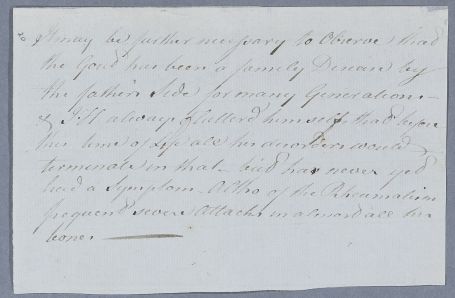 It may be further necessary to Observe that
the Gout has been a family Disease by
the father's Side for many Generations
& J.H always flatterd himself that before
this time of Life all his disorders would
terminate in that - but has never yet
had a Symptom. Altho of the Rheumatism
frequent severe Attacks in almost all his
bones